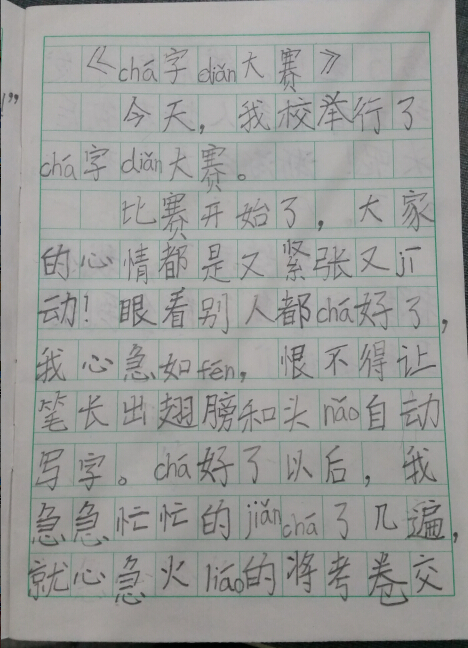 《chá字diǎn大赛》
今天，我校举行了
chá字diǎn大赛。
比赛开始了，大家
的心情都是又紧张又jī
动！眼看别人都chá好了，
我心急如fén，恨不得让
笔长出翅膀和头nǎo自动
写字。chá好了以后，我
急急忙忙的jiǎnchá了几遍，
就心急火liáo的将考卷交